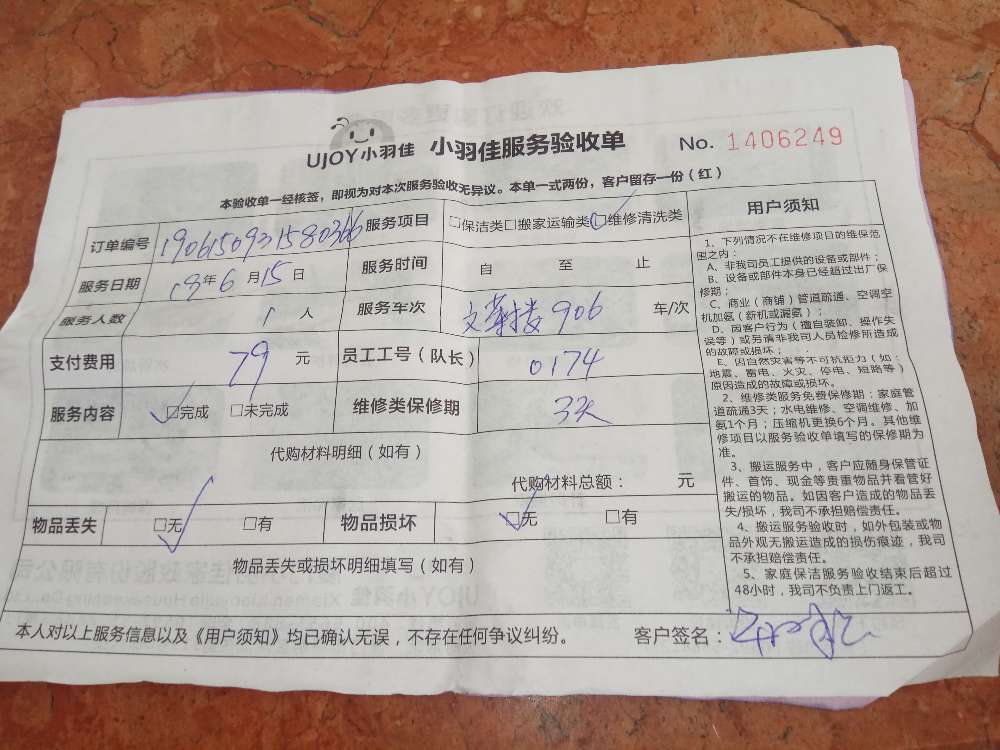 UJOY小羽佳 小羽佳服务验收单 No. 1406249
本验收单一经核签，即视为对本次服务验收无异议。本单一式两份，客户留存一份（红）
订单编号 190615093158036 服务项目 □保洁类□搬家运输类□维修清洗类
服务日期 19年6月15日 服务时间 自 至 止
服务人数 1 人 服务车次 文華楼906 车/次
支付费用 79 元 员工工号（队长） 0174
服务内容 □完成 □未完成 维修类保修期 3天
代购材料明细（如有）
代购材料总额： 元
物品丢失 □无 □有 物品损坏 □无 □有
物品丢失或损坏明细填写（如有）
本人对以上服务信息以及《用户须知》均已确认无误，不存在任何争议纠纷。 客户签名：
用户须知
1、下列情况不在维修项目的维保范
围之内：
A、非我司员工提供的设备或部件；
B、设备或部件本身已经超过出厂保
修期；
C、商业（商铺）管道疏通、空调空
机加氨（新机或漏氨）；
D、因客户行为（擅自装卸、操作失
误等）或另请非我司人员检修所造成
的故障或损坏；
E、因自然灾害等不可抗拒力（如：
地震、蓄电、火灾、停电、短路等）
原因造成的故障或损坏。
2、维修类服务免费保修期：家庭管
道疏通3天；水电维修、空调维修、加
氨1个月；压缩机更换6个月。其他维
修项目以服务验收单填写的保修期为
准。
3、搬运服务中，客户应随身保管证
件、首饰、现金等贵重物品并看管好
搬运的物品。如因客户造成的物品丢
失/损坏，我司不承担赔偿责任。
4、搬运服务验收时，如外包装或物
品外观无搬运造成的损伤痕迹，我司
不承担赔偿责任。
5、家庭保洁服务验收结束后超过
48小时，我司不负责上门返工。